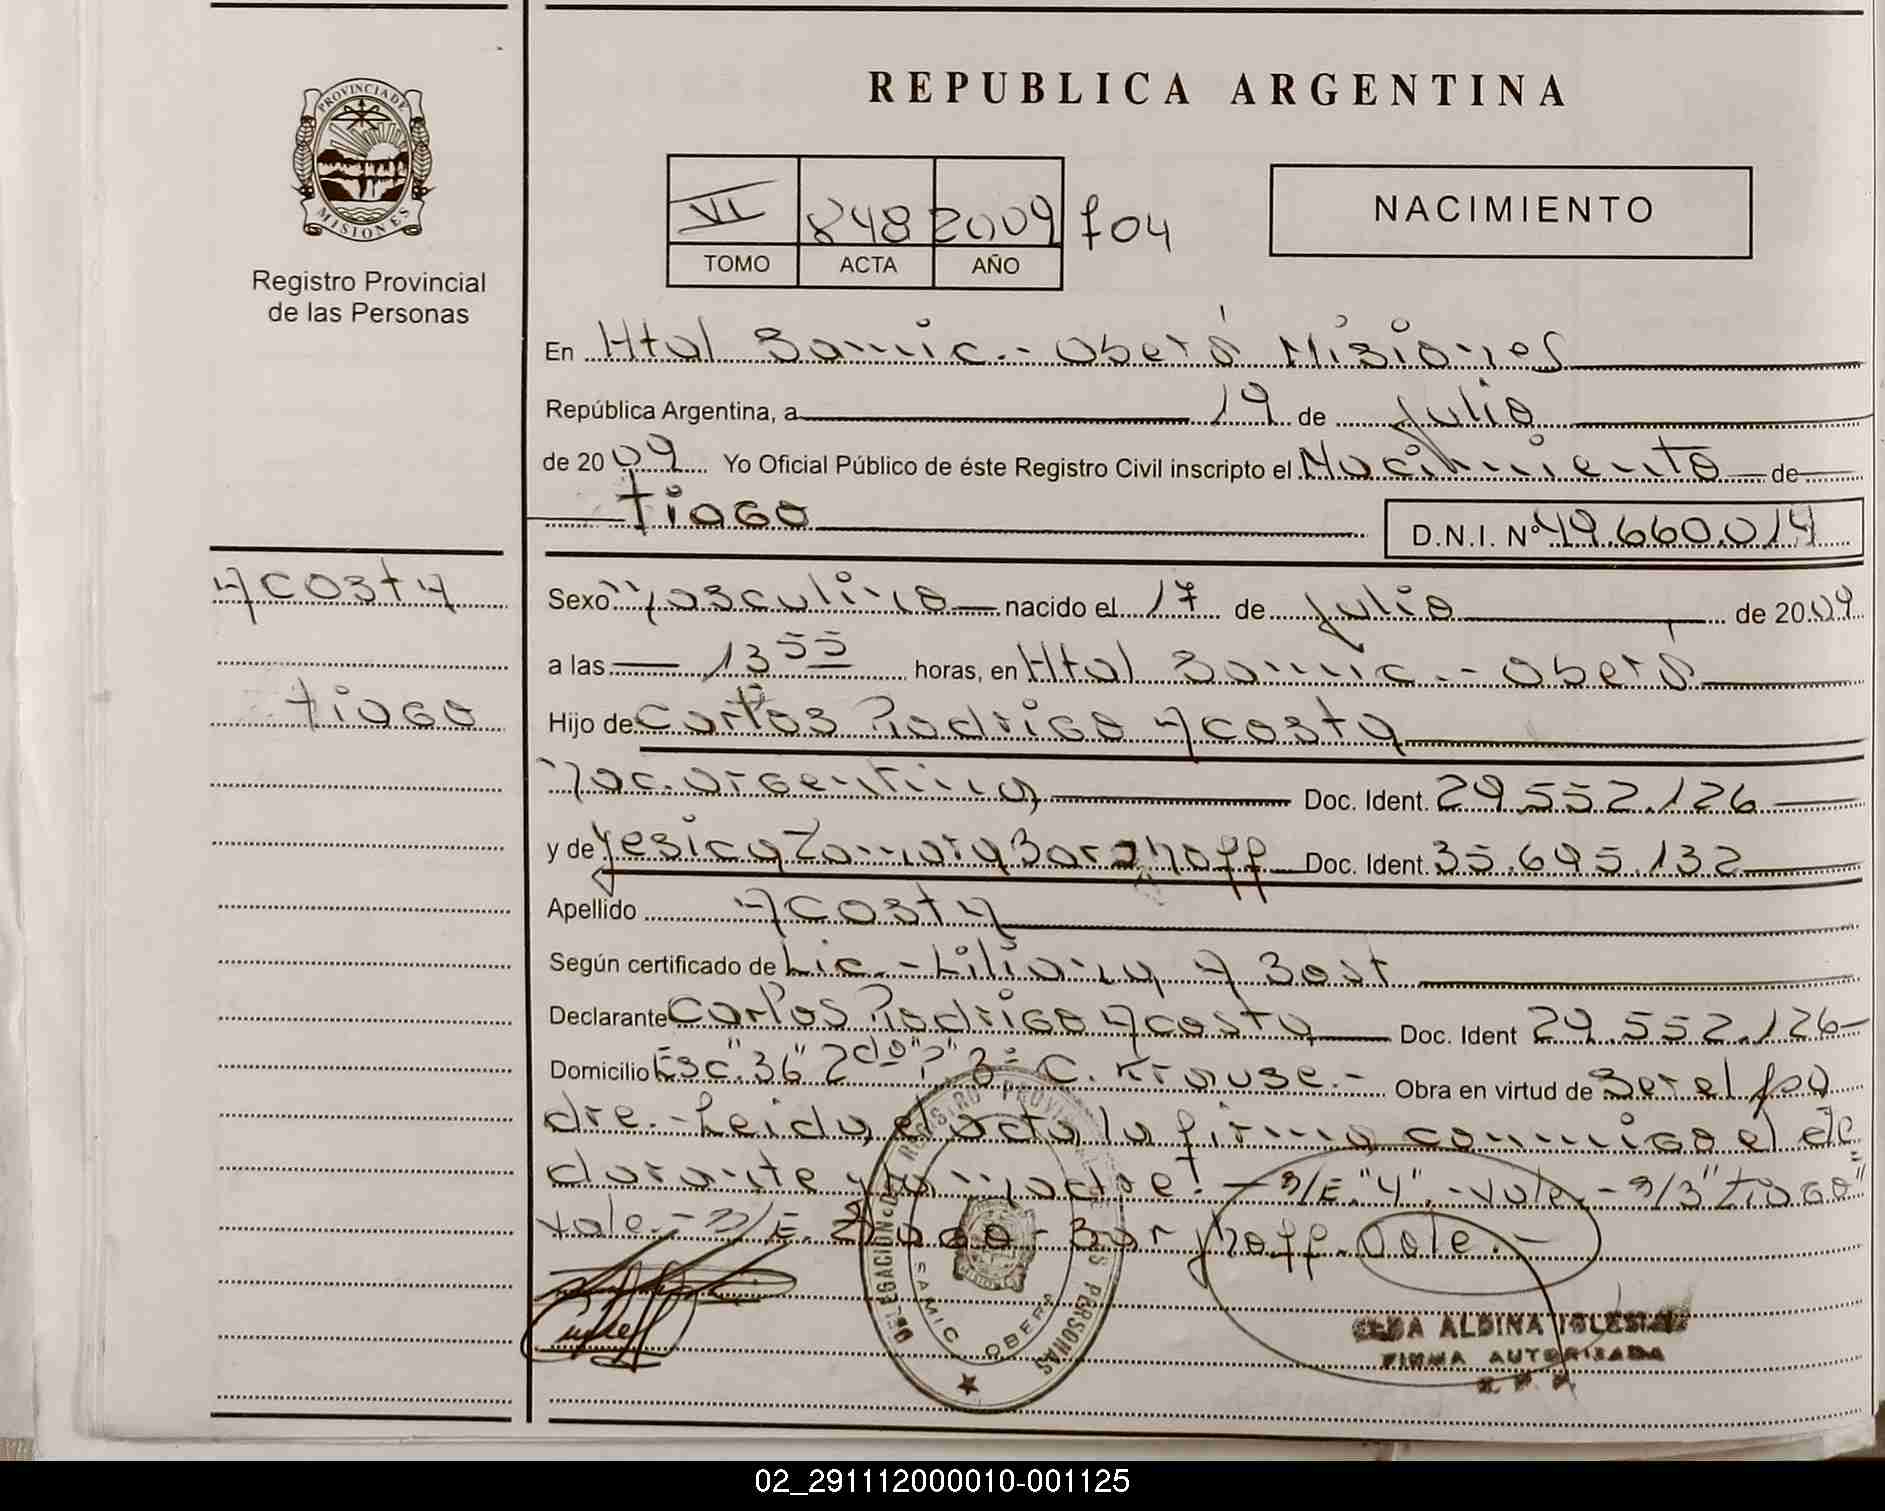 PROVINCIA DE
MISIONES
Registro Provincial
de las Personas
REPUBLICA ARGENTINA
VI 848 2009 f04
TOMO ACTA AÑO
NACIMIENTO
En Htal Samic.- Oberá Misiones
República Argentina, a 19 de Julio
de 2009 Yo Oficial Público de éste Registro Civil inscripto el Nacimiento de
tiago
D.N.I. Nº 49.660.014
Acosta
tiago
Sexo Masculino nacido el 17 de Julio de 2009
a las 13 55 horas, en Htal Samic.- Oberá
Hijo de Carlos Rodrigo Acosta
Nac. argentina Doc. Ident. 29.552.126
y de Yesica Zamara Barghoff Doc. Ident. 35.695.132
Apellido Acosta
Según certificado de Lic.- Liliana A Bast
Declarante Carlos Rodrigo Acosta Doc. Ident 29.552.126
Domicilio Esc "36" 2do C. Krause.- Obra en virtud de Ser el pa
dre.- Leida el acta la firma conmigo el de
durante y la madre! - S/E. "4".- Vale.- S/B "tiago"
Vale.- S/E. Barghoff. Vale.-
DELEGACION REGISTRO PROVINCIAL DE LAS PERSONAS
SAMIC OBERA
ALDINA IGLESIAS
FIRMA AUTORIZADA
02_291112000010-001125